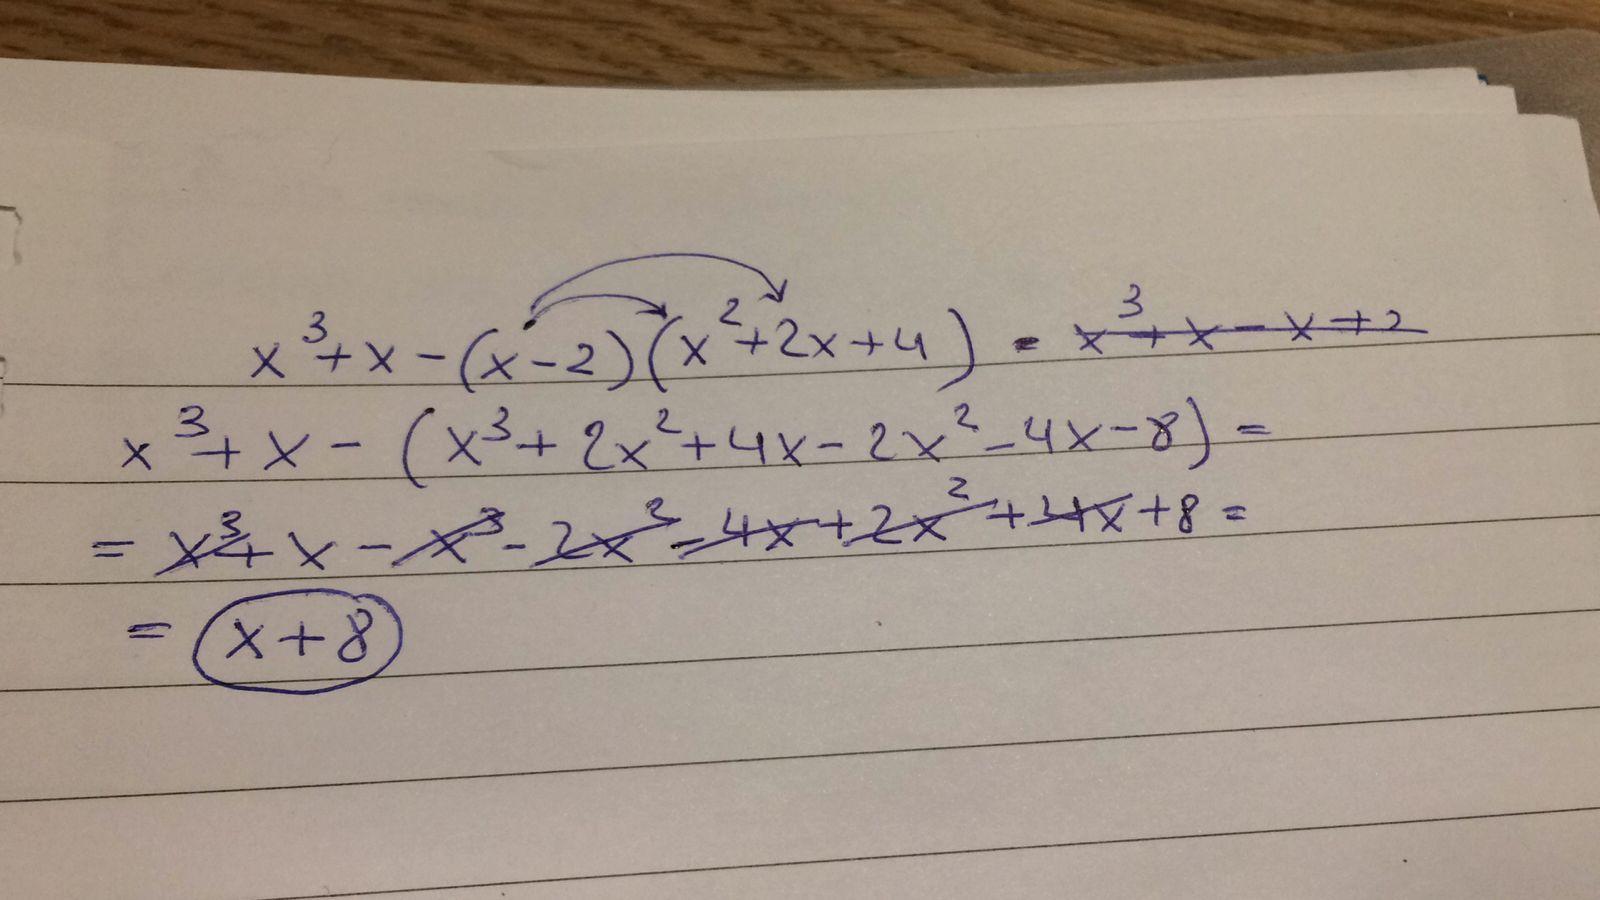 x³+x-(x-2)(x²+2x+4) = x³+x-x+2
x³+x-(x³+2x²+4x-2x²-4x-8)=
= x³+x-x³-2x²-4x+2x²+4x+8=
= x+8